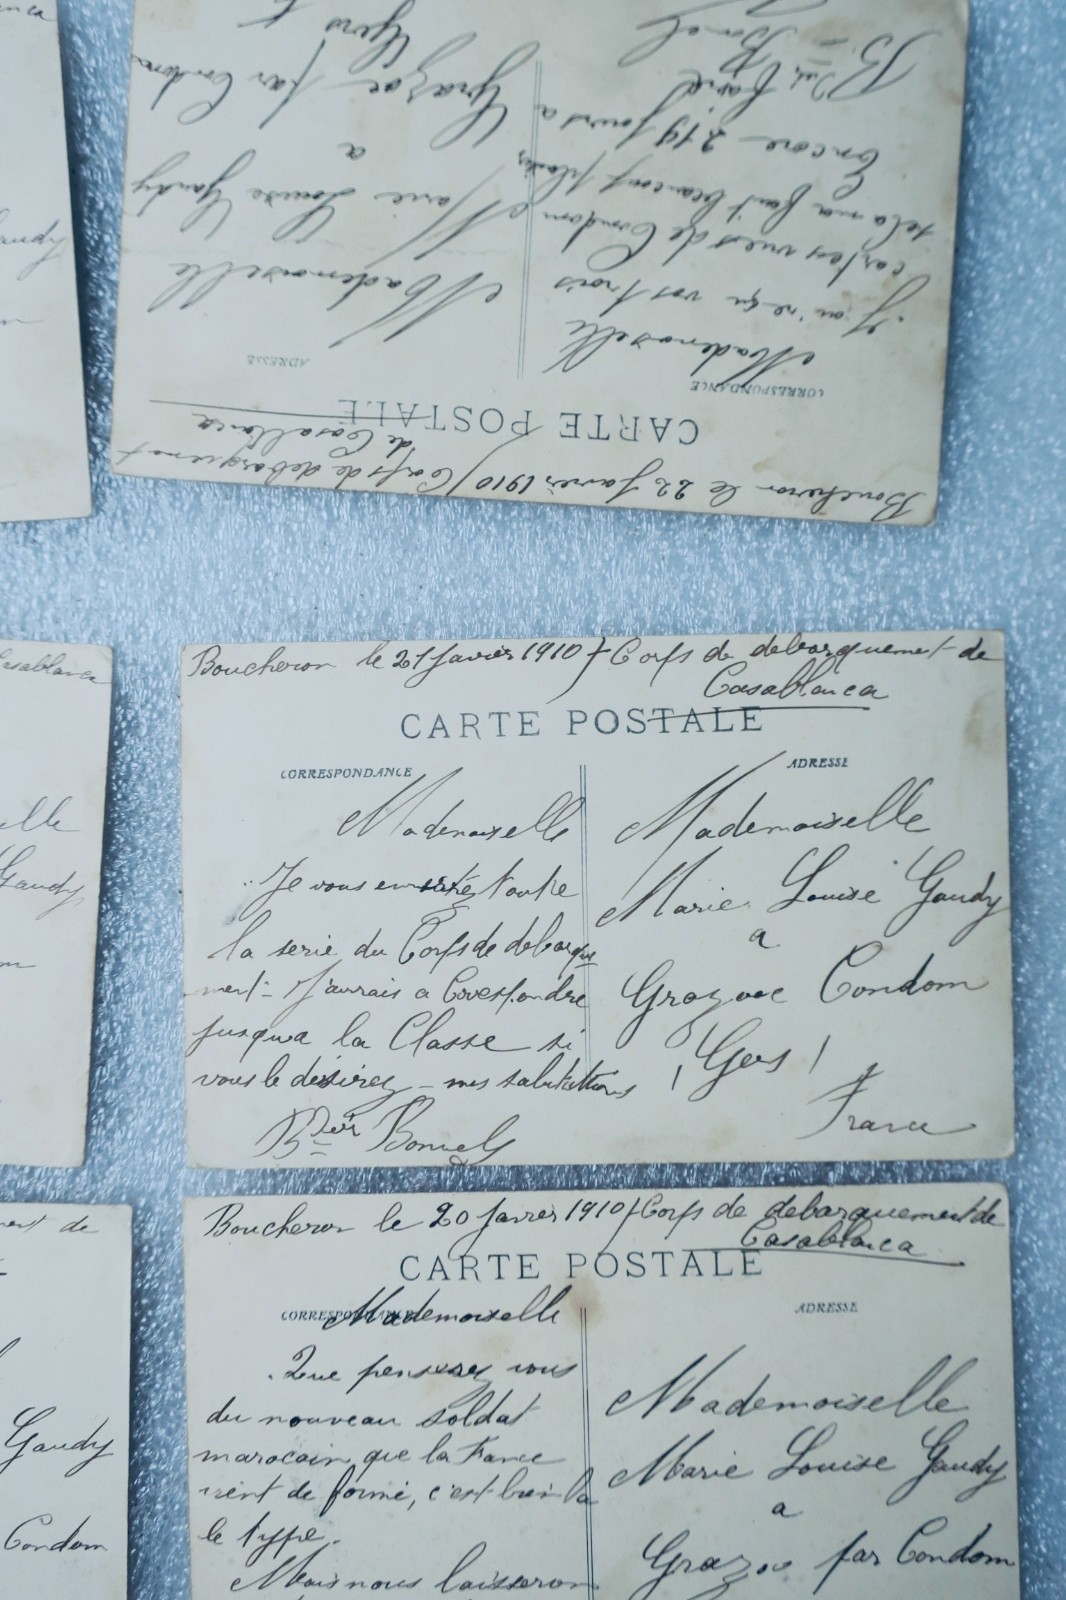 Boucheron le 22 Janvier 1910 / Corps de debarquement
de Casablanca
CARTE POSTALE
CORRESPONDANCE
ADRESSE
Mademoiselle
J'ai reçu vos trois
cartes vues de Condom
cela ma fait beaucoup plaisir
Encore 219 Jours a
faire
Mademoiselle
Marie Louise Gaudy
a
Grazac par Condom
Gers
Boucheron le 21 Janvier 1910 / Corps de debarquement de
Casablanca
CARTE POSTALE
CORRESPONDANCE
ADRESSE
Mademoiselle
Je vous toute
la serie du Corps de debarque
ment - J'aurais a Correspondre
jusqua la Classe si
vous le désirez - mes salutations
Mademoiselle
Marie Louise Gaudy
a
Condom
Gers
France
Boucheron le 20 Janvier 1910 / Corps de debarquement de
Casablanca
CARTE POSTALE
CORRESPONDANCE
ADRESSE
Mademoiselle
Que pensez vous
du nouveau soldat
marocain que la France
vient de formé, c'est bien la
le type.
Mais nous laisseron
Mademoiselle
Marie Louise Gaudy
a
par Condom
Casablanca
Gaudy
elle
Gaudy
ment de
Gaudy
Condom